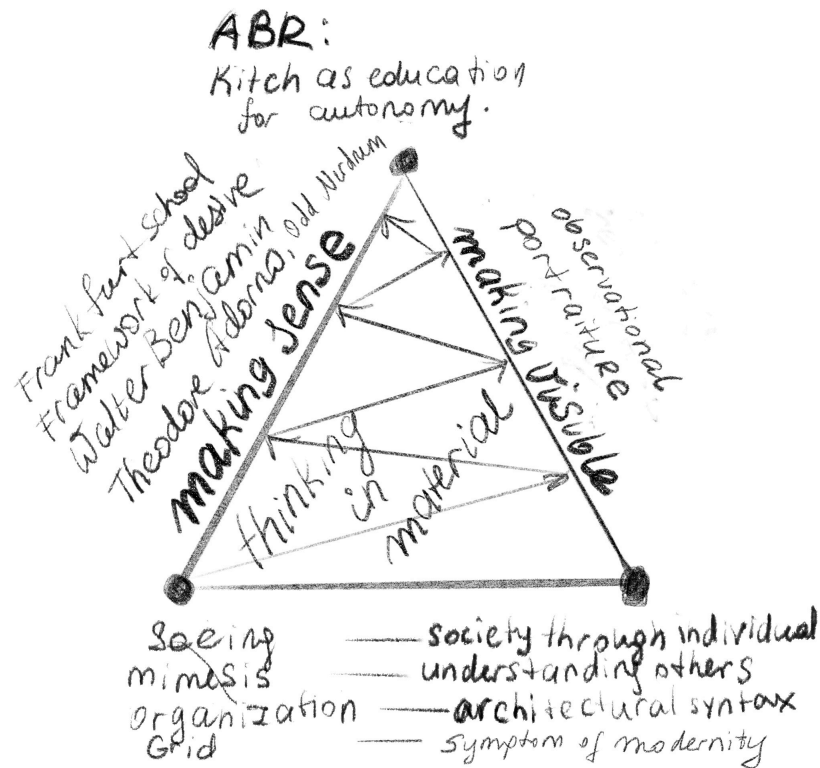 ABR:
Kitch as education
for autonomy.
Frankfurt school
Framework of desire
Walter Benjamin
Theodore Adorno, Odd Nerdrum
making sense
making visible
observational
portraiture
thinking
in
material
Seeing — society through individual
mimesis — understanding others
organization — architectural syntax
Grid — symptom of modernity